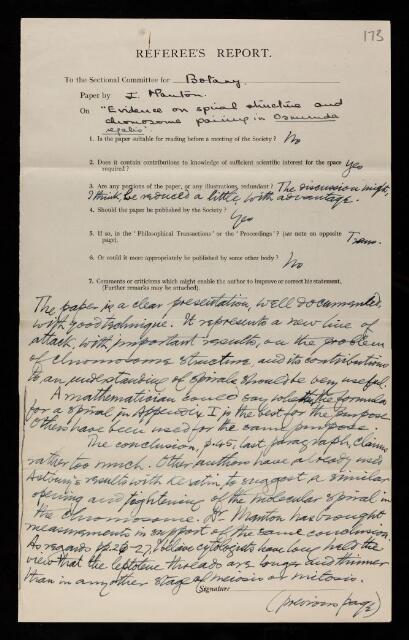 173
REFEREE'S REPORT.
To the Sectional Committee for Botany.
Paper by I. Manton.
On "Evidence on spiral structure and
chromosome pairing in Osmunda
regalis".
1. Is the paper suitable for reading before a meeting of the Society? No
2. Does it contain contributions to knowledge of sufficient scientific interest for the space
required? Yes
3. Are any portions of the paper, or any illustrations, redundant? The discussion might,
I think, be reduced a little with advantage.
4. Should the paper be published by the Society? Yes
5. If so, in the 'Philosophical Transactions' or the 'Proceedings'? (see note on opposite
page). Trans.
6. Or could it more appropriately be published by some other body? No
7. Comments or criticisms which might enable the author to improve or correct his statement.
(Further remarks may be attached).
The paper is a clear presentation, well documented
with good technique. It represents a new line of
attack, with important results, on the problem
of chromosome structure, and its contributions
to an understanding of spirals should be very useful.
A mathematician could say whether the formula
for a spiral in Appendix I is the best for the purpose
Others have been used for the same purpose.
The conclusion, p.45, last paragraph, claims
rather too much. Other authors have already used
Astbury's results with keratin, to suggest a similar
opening and tightening of the molecular spiral in
the chromosome. Dr Manton has brought
measurements in support of the same conclusion.
As regards pp. 26-27, cytologists have long held the
view that the leptotene threads are longer and thinner
than in any other stage of meiosis or mitosis.
(Signature
(previous page)